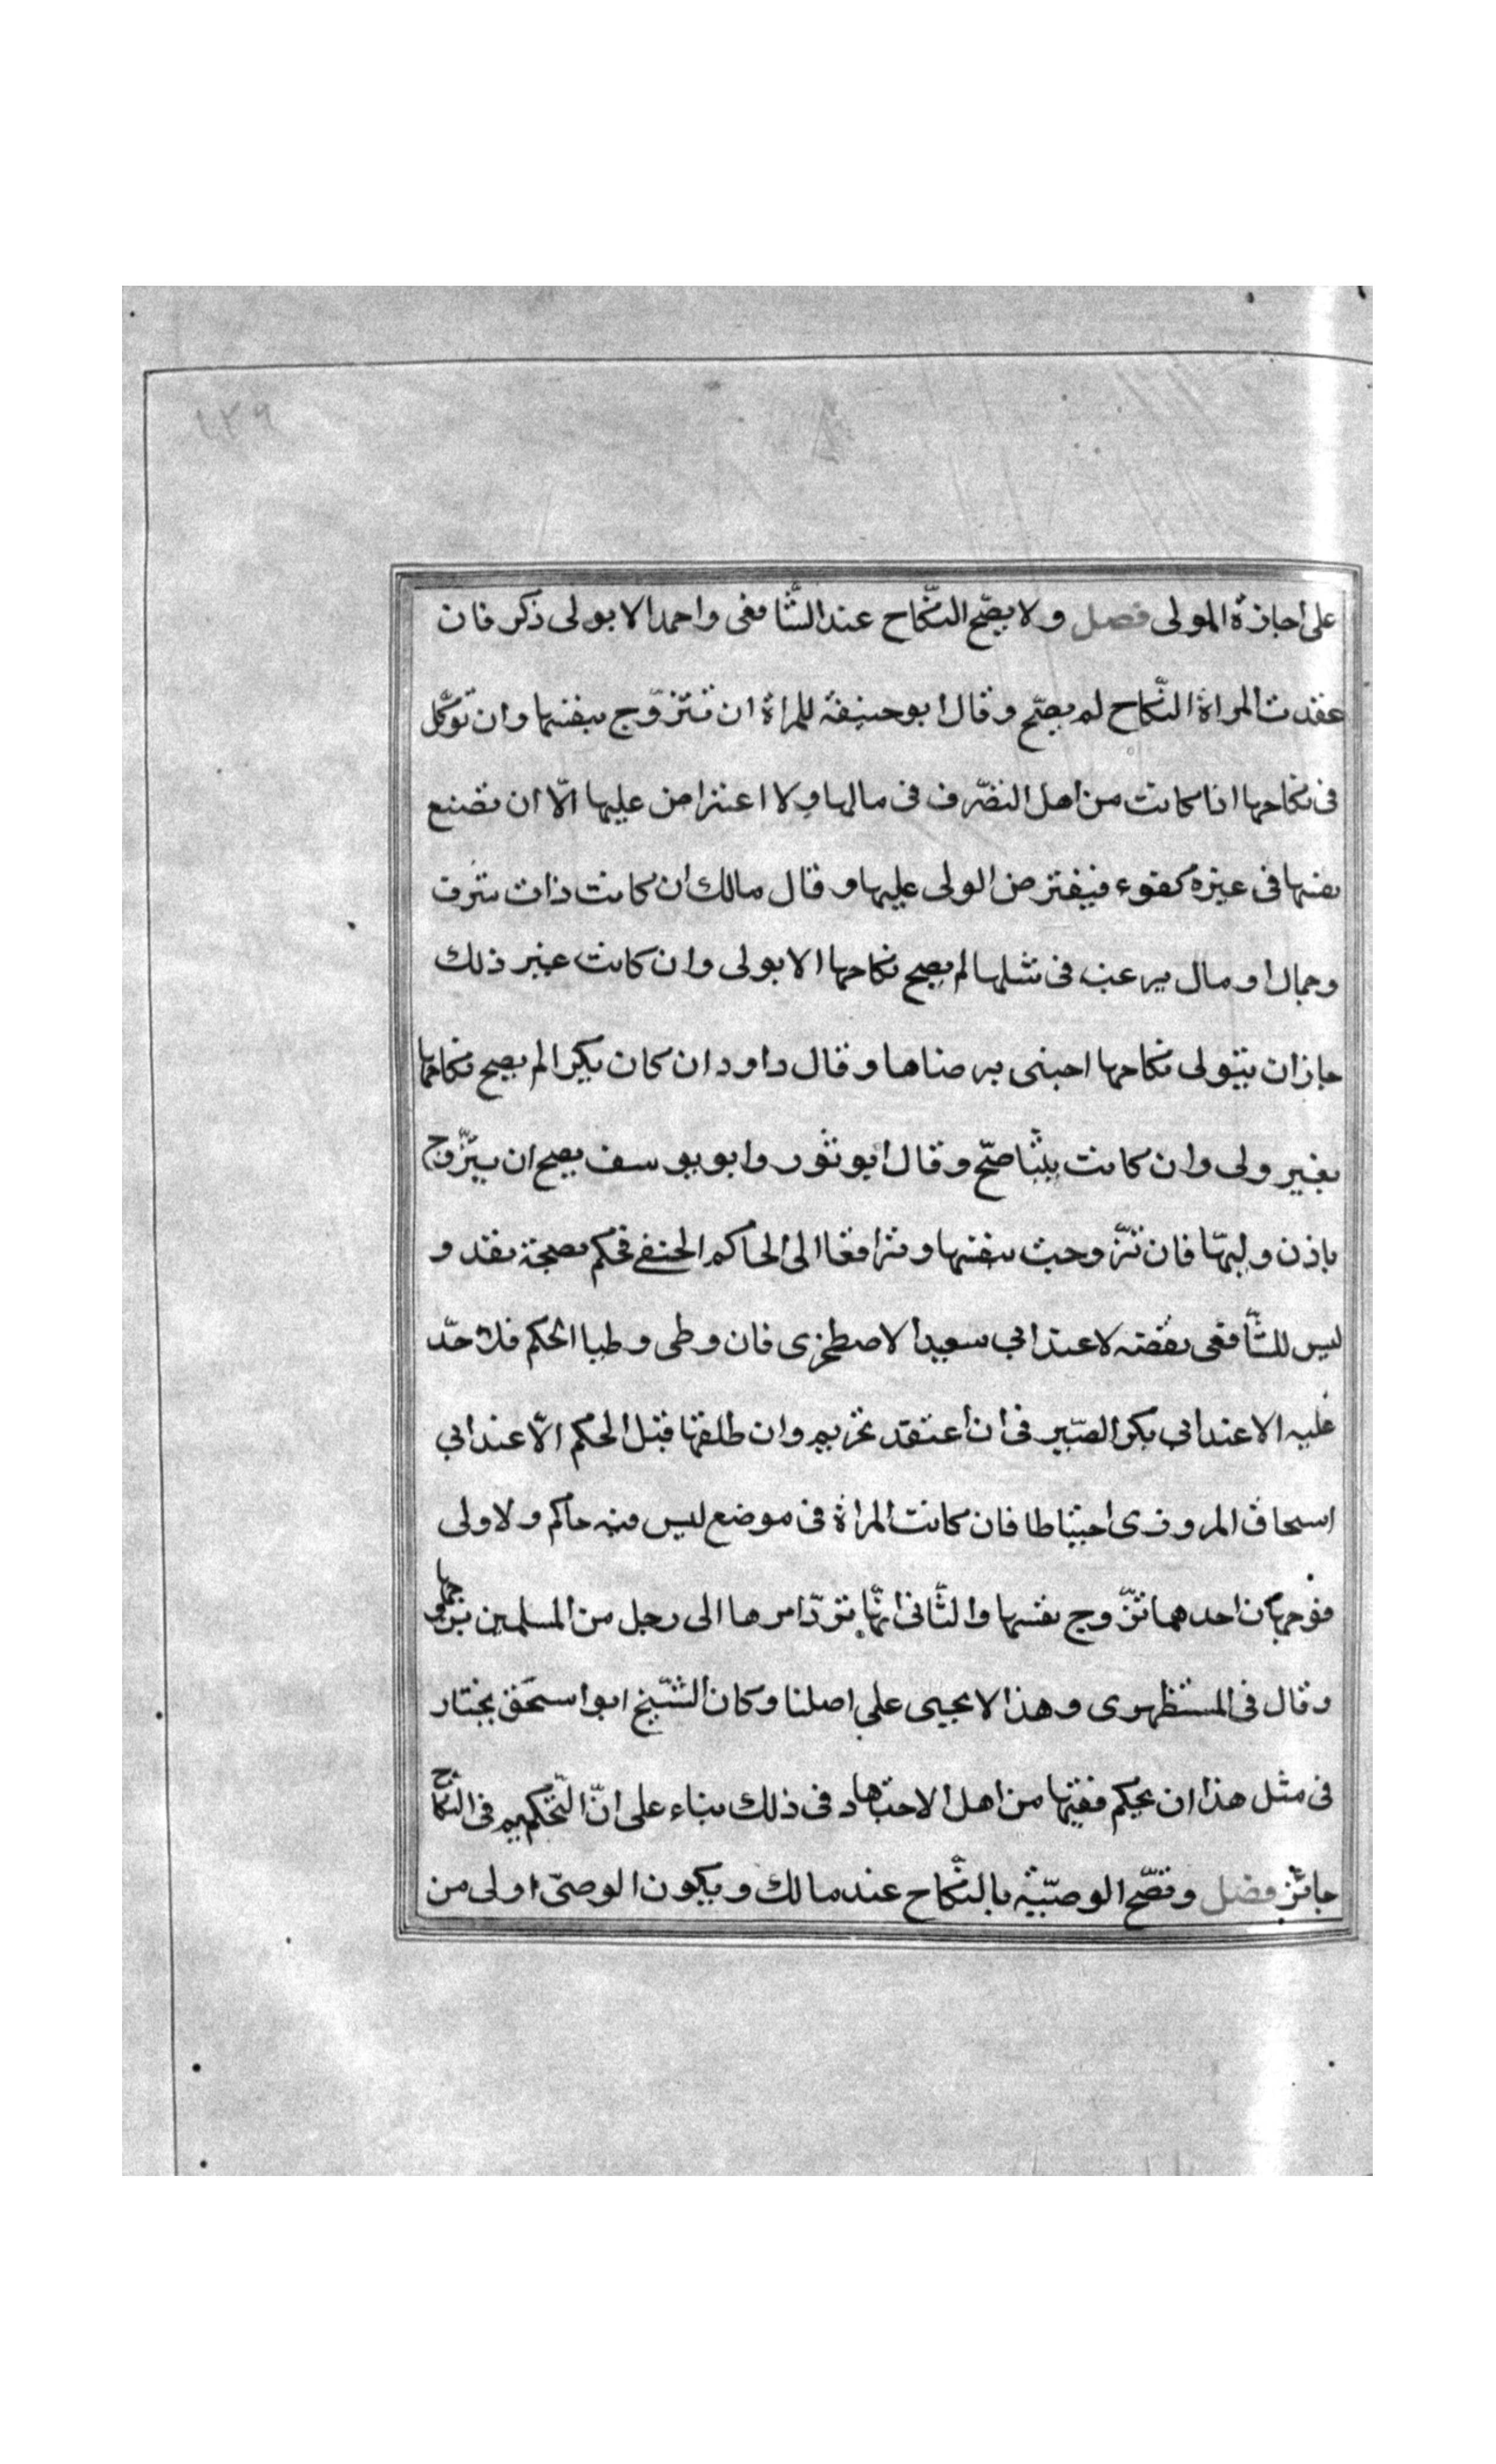 ١٣٩
على اجازة المولى فصل ولا يصّح النّكاح عند الشّافعى واحمد الا بولى ذكر فان
عقدت المراة النّكاح لم يصّح وقال ابو حنيفة للمراة ان تتزوّج بنفسها وان توكّل
فى نكاحها اذا كانت من اهل التصّرف فى مالها ولا اعتراض عليها الّا ان تضع
نفسها فى غيره كفوء فيعترض الولى عليها وقال مالك ان كانت ذات شرف
وجمال او مال يرغب فى مثلها لم يصح نكاحها الا بولى وان كانت غير ذلك
جاز ان يتولى نكاحها اجنبى برضاها وقال داود ان كان بكرا لم يصح نكاحها
بغير ولى وان كانت ثيّبا صحّ وقال ابو ثور وابو يوسف يصح ان يتزّوج
باذن وليّها فان تزّوجت بنفسها وترافعا الى الحاكم الحنفى فحكم بصحته نفذ و
ليس للشّافعى نقضه لا عند ابى سعيد الاصطخرى فان وطى وطيا الحكم فلا حدّ
عليه الا عند ابى بكر الصّيرفى ان اعتقد تحريم وان طلقها قبل الحكم الّا عند ابى
اسحاق المروزى احتياطا فان كانت المراة فى موضع ليس فيه حاكم ولا ولى
فوجهان احدهما تزّوج نفسها والثّانى انّها تردّ امرها الى رجل من المسلمين يزوجها
وقال فى المستظهرى وهذا لا يجيى على اصلنا وكان الشّيخ ابو اسحق يختار
فى مثل هذا ان يحكم فقيها من اهل الاجتهاد فى ذلك بناء على انّ التّحكيم فى النّكاح
جائز فصل وتصّح الوصّية بالنّكاح عند مالك ويكون الوصىّ اولى من